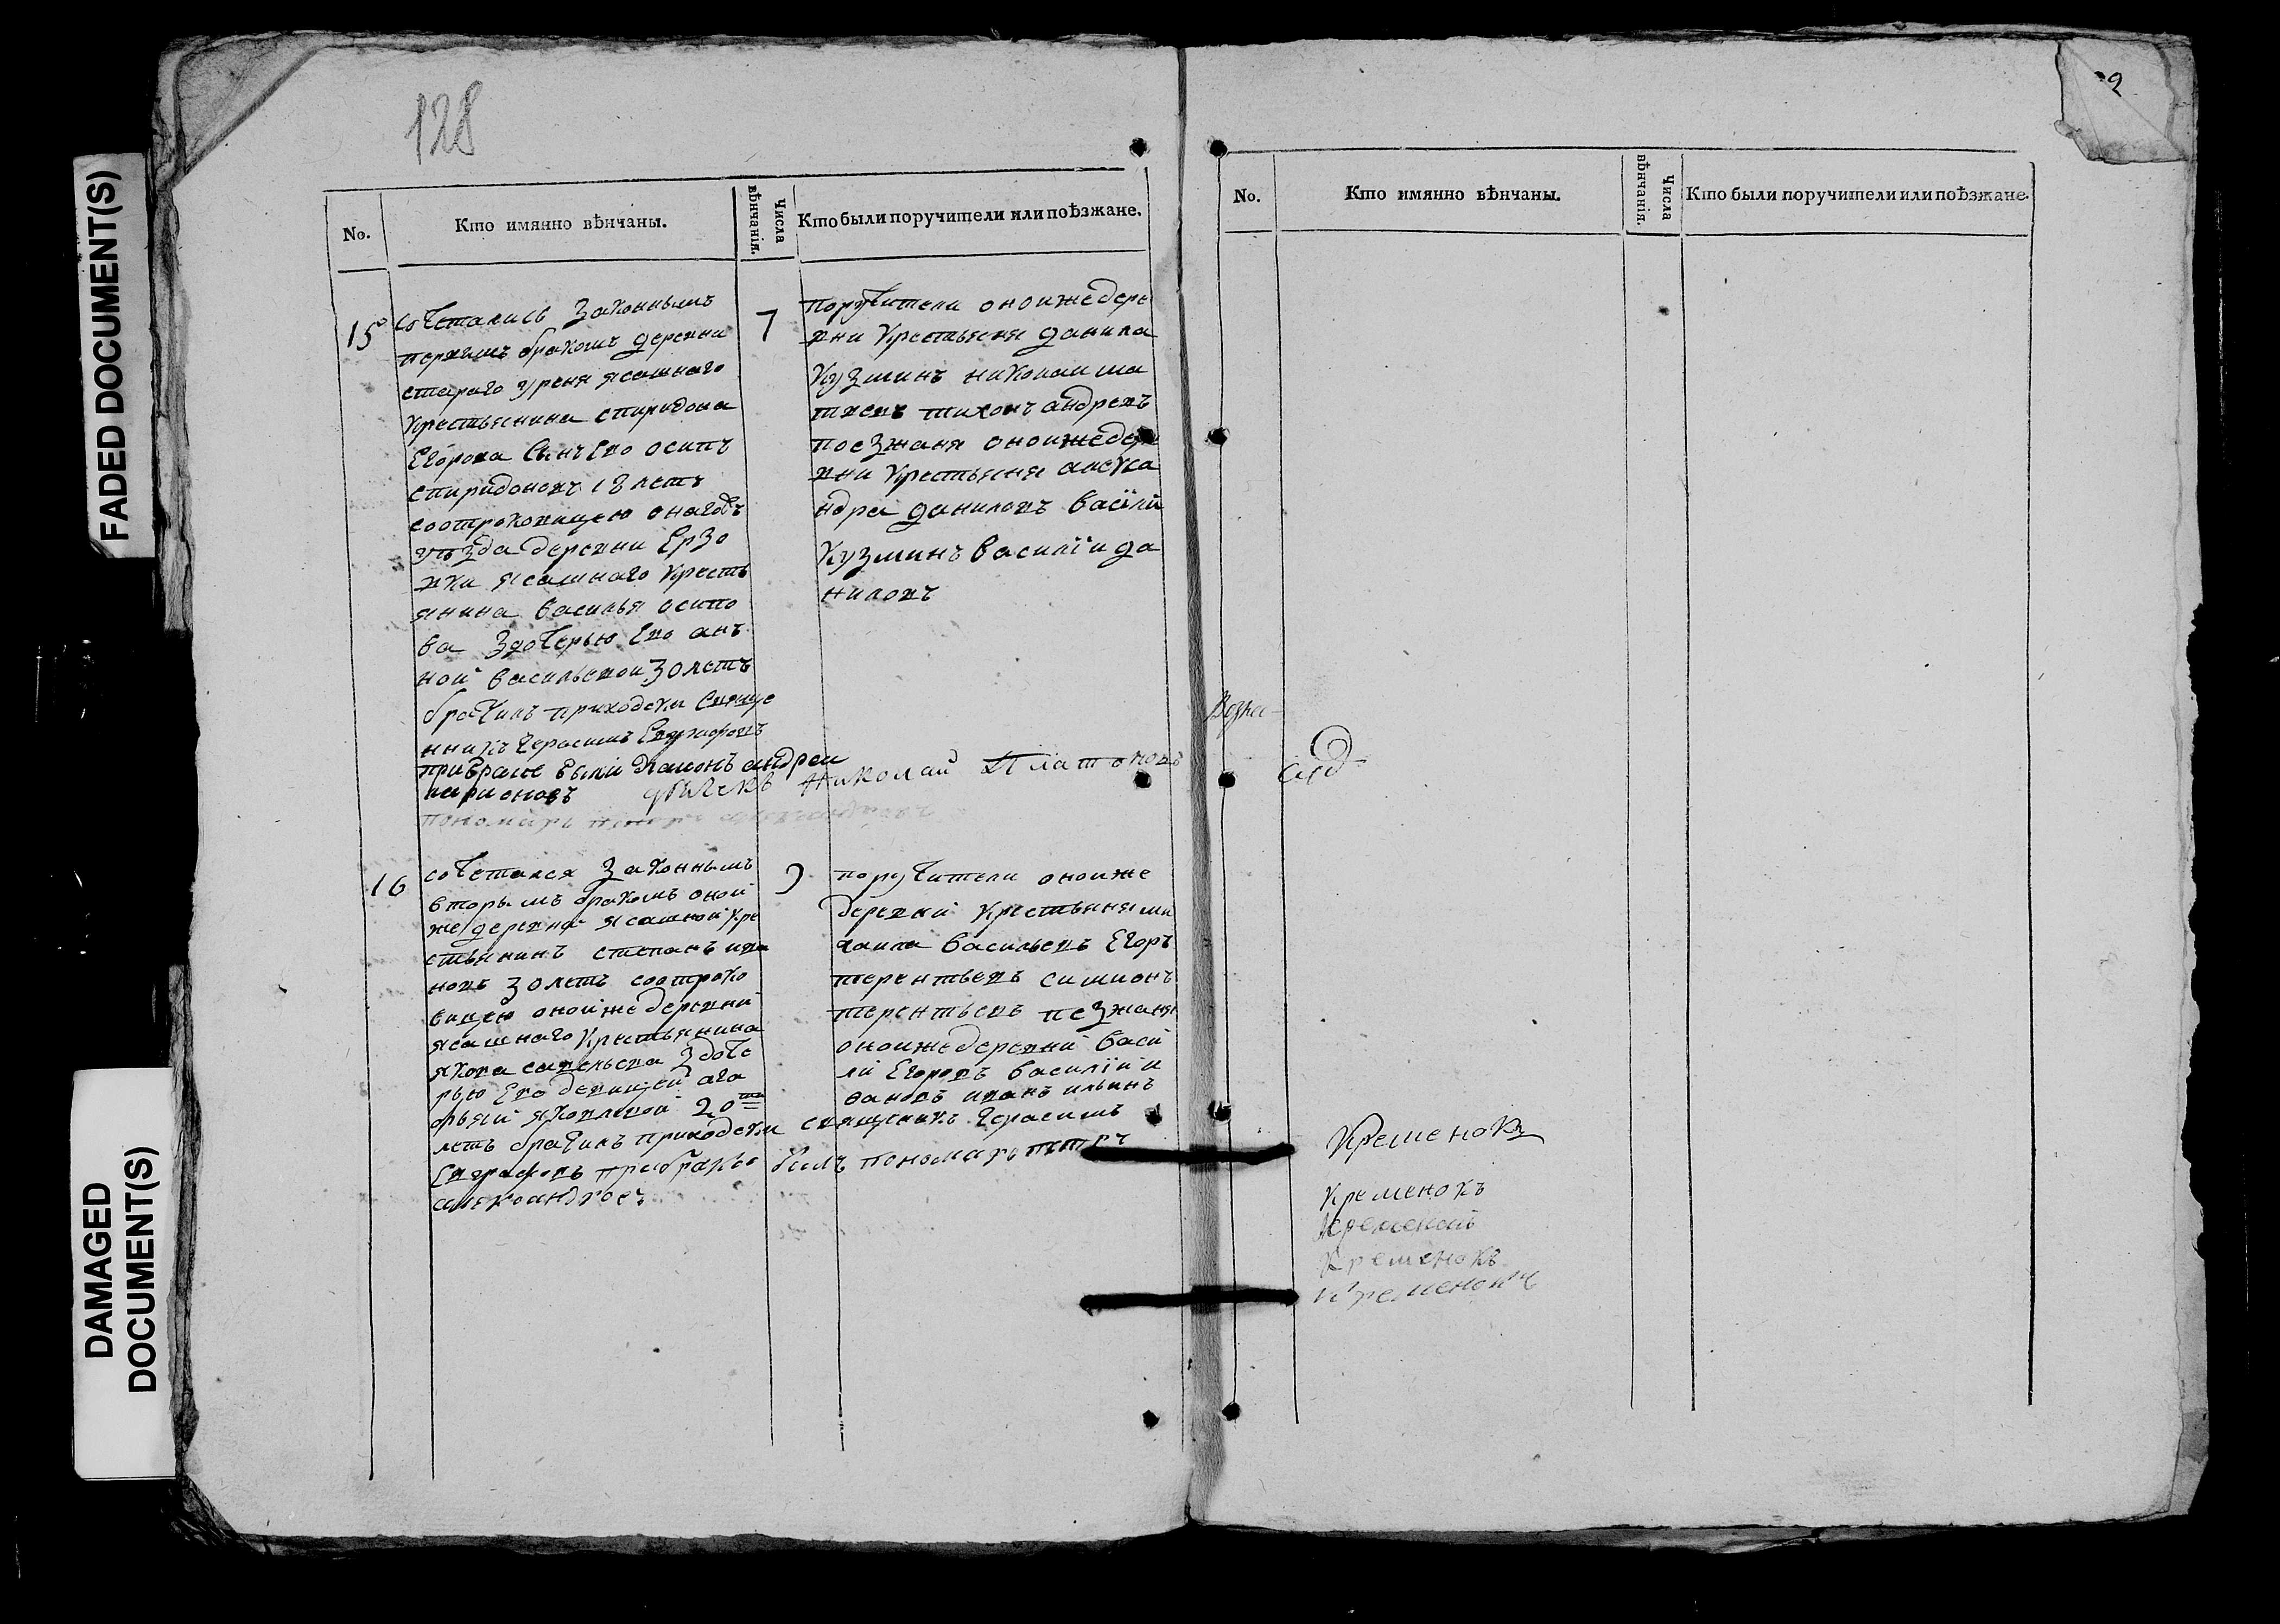 FADED DOCUMENT(S)
DAMAGED
DOCUMENT(S)
128
No.
Кто имянно вѣнчаны.
Числа
вѣнчанія.
Кто были поручители или поѣзжане.
15
сочетались законнымъ
первымъ бракомъ деревни
стараго уреня ясашнаго
крестьянина спиридона
Егорова сынъ Его осипъ
спиридоновъ 18 летъ
соотроковицею онагожъ
уѣзда деревни Ерзо
вки ясашнаго кресть
янина василья осипо
ва здочерью Его анъ
ной васильевой 30 летъ
брачилъ приходски свяще
нникъ Герасимъ Евграфовъ
прибраке были диаконъ андреи
ларионовъ дьячекъ Николай Платоновъ
пономарь
7
поручители оноижедере
вни крестьяня данила
кузминъ николаи ма
твевъ тихонъ андревъ
поезжаня оноижедере
вни крестьяня алекса
ндра даниловъ васїли
кузминъ василїи да
ниловъ
16
сочетался законнымъ
вторымъ бракомъ оной
же деревни ясашной кре
стьянинъ степанъ ива
новъ 30 летъ соотроко
вицею онойже деревни
ясашнаго крестьянина
якова савельева здоче
рью Его девицей ага
фьей яковлевой 20
летъ брачилъ приходски свящсникъ Герасимъ
Евграфовъ прибраке былъ пономарь петръ
александровъ
9
поручители оноиже
деревни крестьяня ми
хаила васильевъ Егоръ
терентьевъ симионъ
терентьевъ пезжаня
оноижедеревни васи
ли Егоровъ василїи и
вановъ иванъ ильинъ
No.
Кто имянно вѣнчаны.
Числа
вѣнчанія.
Кто были поручители или поѣзжане.
Кременокъ
Кременокъ
Кременокъ
Кременокъ